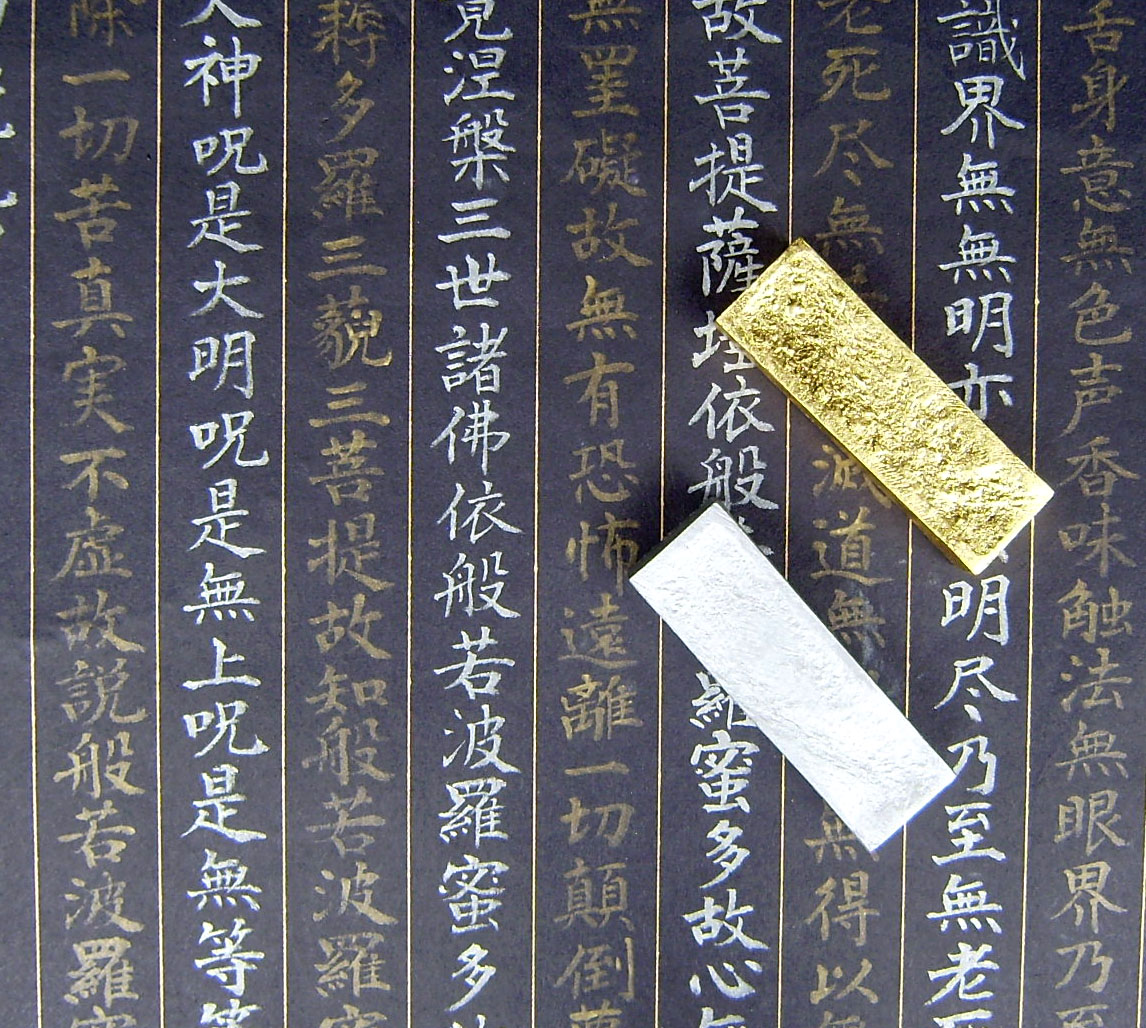 舌身意無色声香味触法無眼界乃至
識界無無明亦明尽乃至無老死
老死尽無滅道無無得以無
故菩提薩埵依般羅蜜多故心無
無罣礙故無有恐怖遠離一切顛倒夢
竟涅槃三世諸佛依般若波羅蜜多
耨多羅三藐三菩提故知般若波羅蜜
大神呪是大明呪是無上呪是無等等
除一切苦真実不虚故説般若波羅蜜